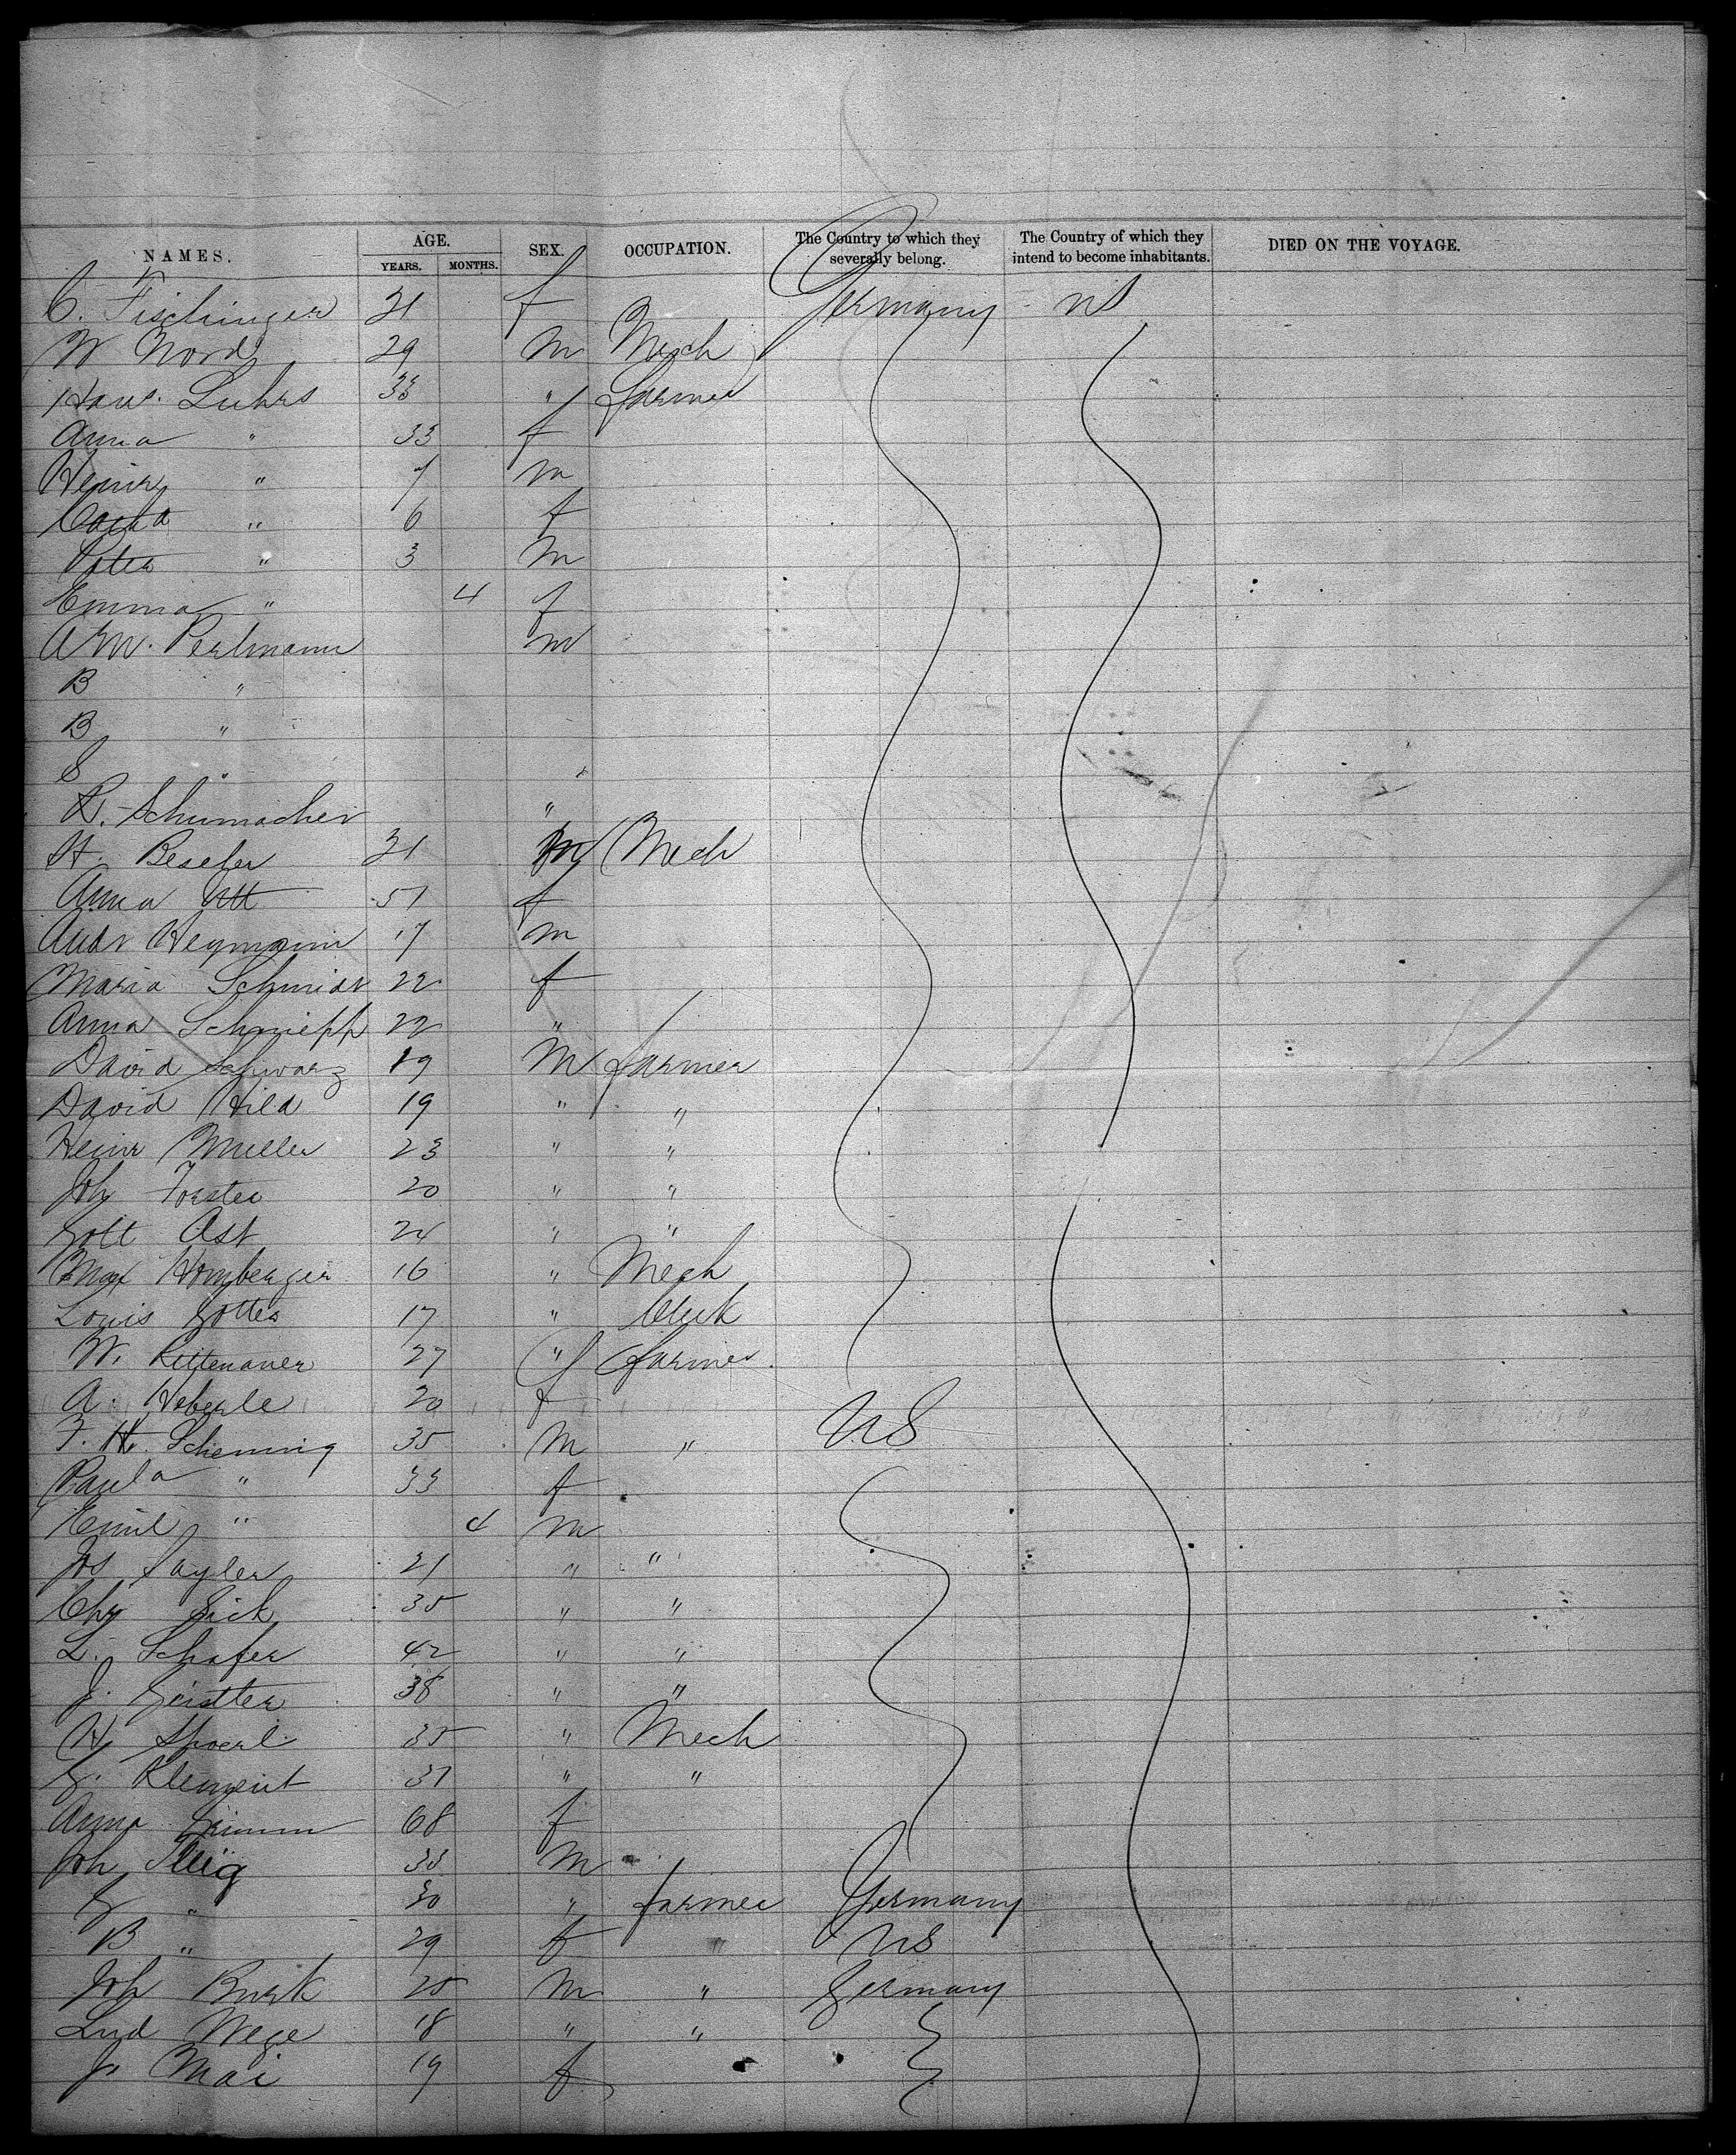 NAMES. AGE. YEARS. MONTHS. SEX. OCCUPATION. The Country to which they severally belong. The Country of which they intend to become inhabitants. DIED ON THE VOYAGE.
C. Fischinger 21 f Germany US
W Nord 29 m Mech
Hans. Luhrs 33 " farmer
Anna " 33 f
Heinr " 7 m
" 6 f
Peter " 3 m
Emma " 4 f
A M. Perlmann m
B "
B "
S "
R. Schumacher "
H. Beseler 21 m Mech
Anna Ott 51 f
Andr Heymann 17 m
Maria Schmidt 22 f
Anna Schniepp 22 "
David Schwarz 19 M farmer
David Hild 19 " "
Heinr Muller 23 " "
Joh Forster 20 " "
Gott Ast 24 " "
Max Homberger 16 " Mech
Louis Gotter 17 " Clerk
W. Rettenauer 27 " farmer
A. Heberle 20 f
F. H. Schenning 35 m " US
Paula " 33 f
Emil " 4 m
Jos Sayler 21 " "
Chr Sick 35 " "
L. Schafer 42 " "
J. Geistter 38 " "
H. Spoerl 35 " Mech
G. Klement 37 " "
Anna Grimm 68 f
Joh Illig 33 m "
G " 30 " farmer Germany
B " 29 f " US
Joh Burk 25 m " Germany
Lud Wege 18 " "
J. Mai 19 f